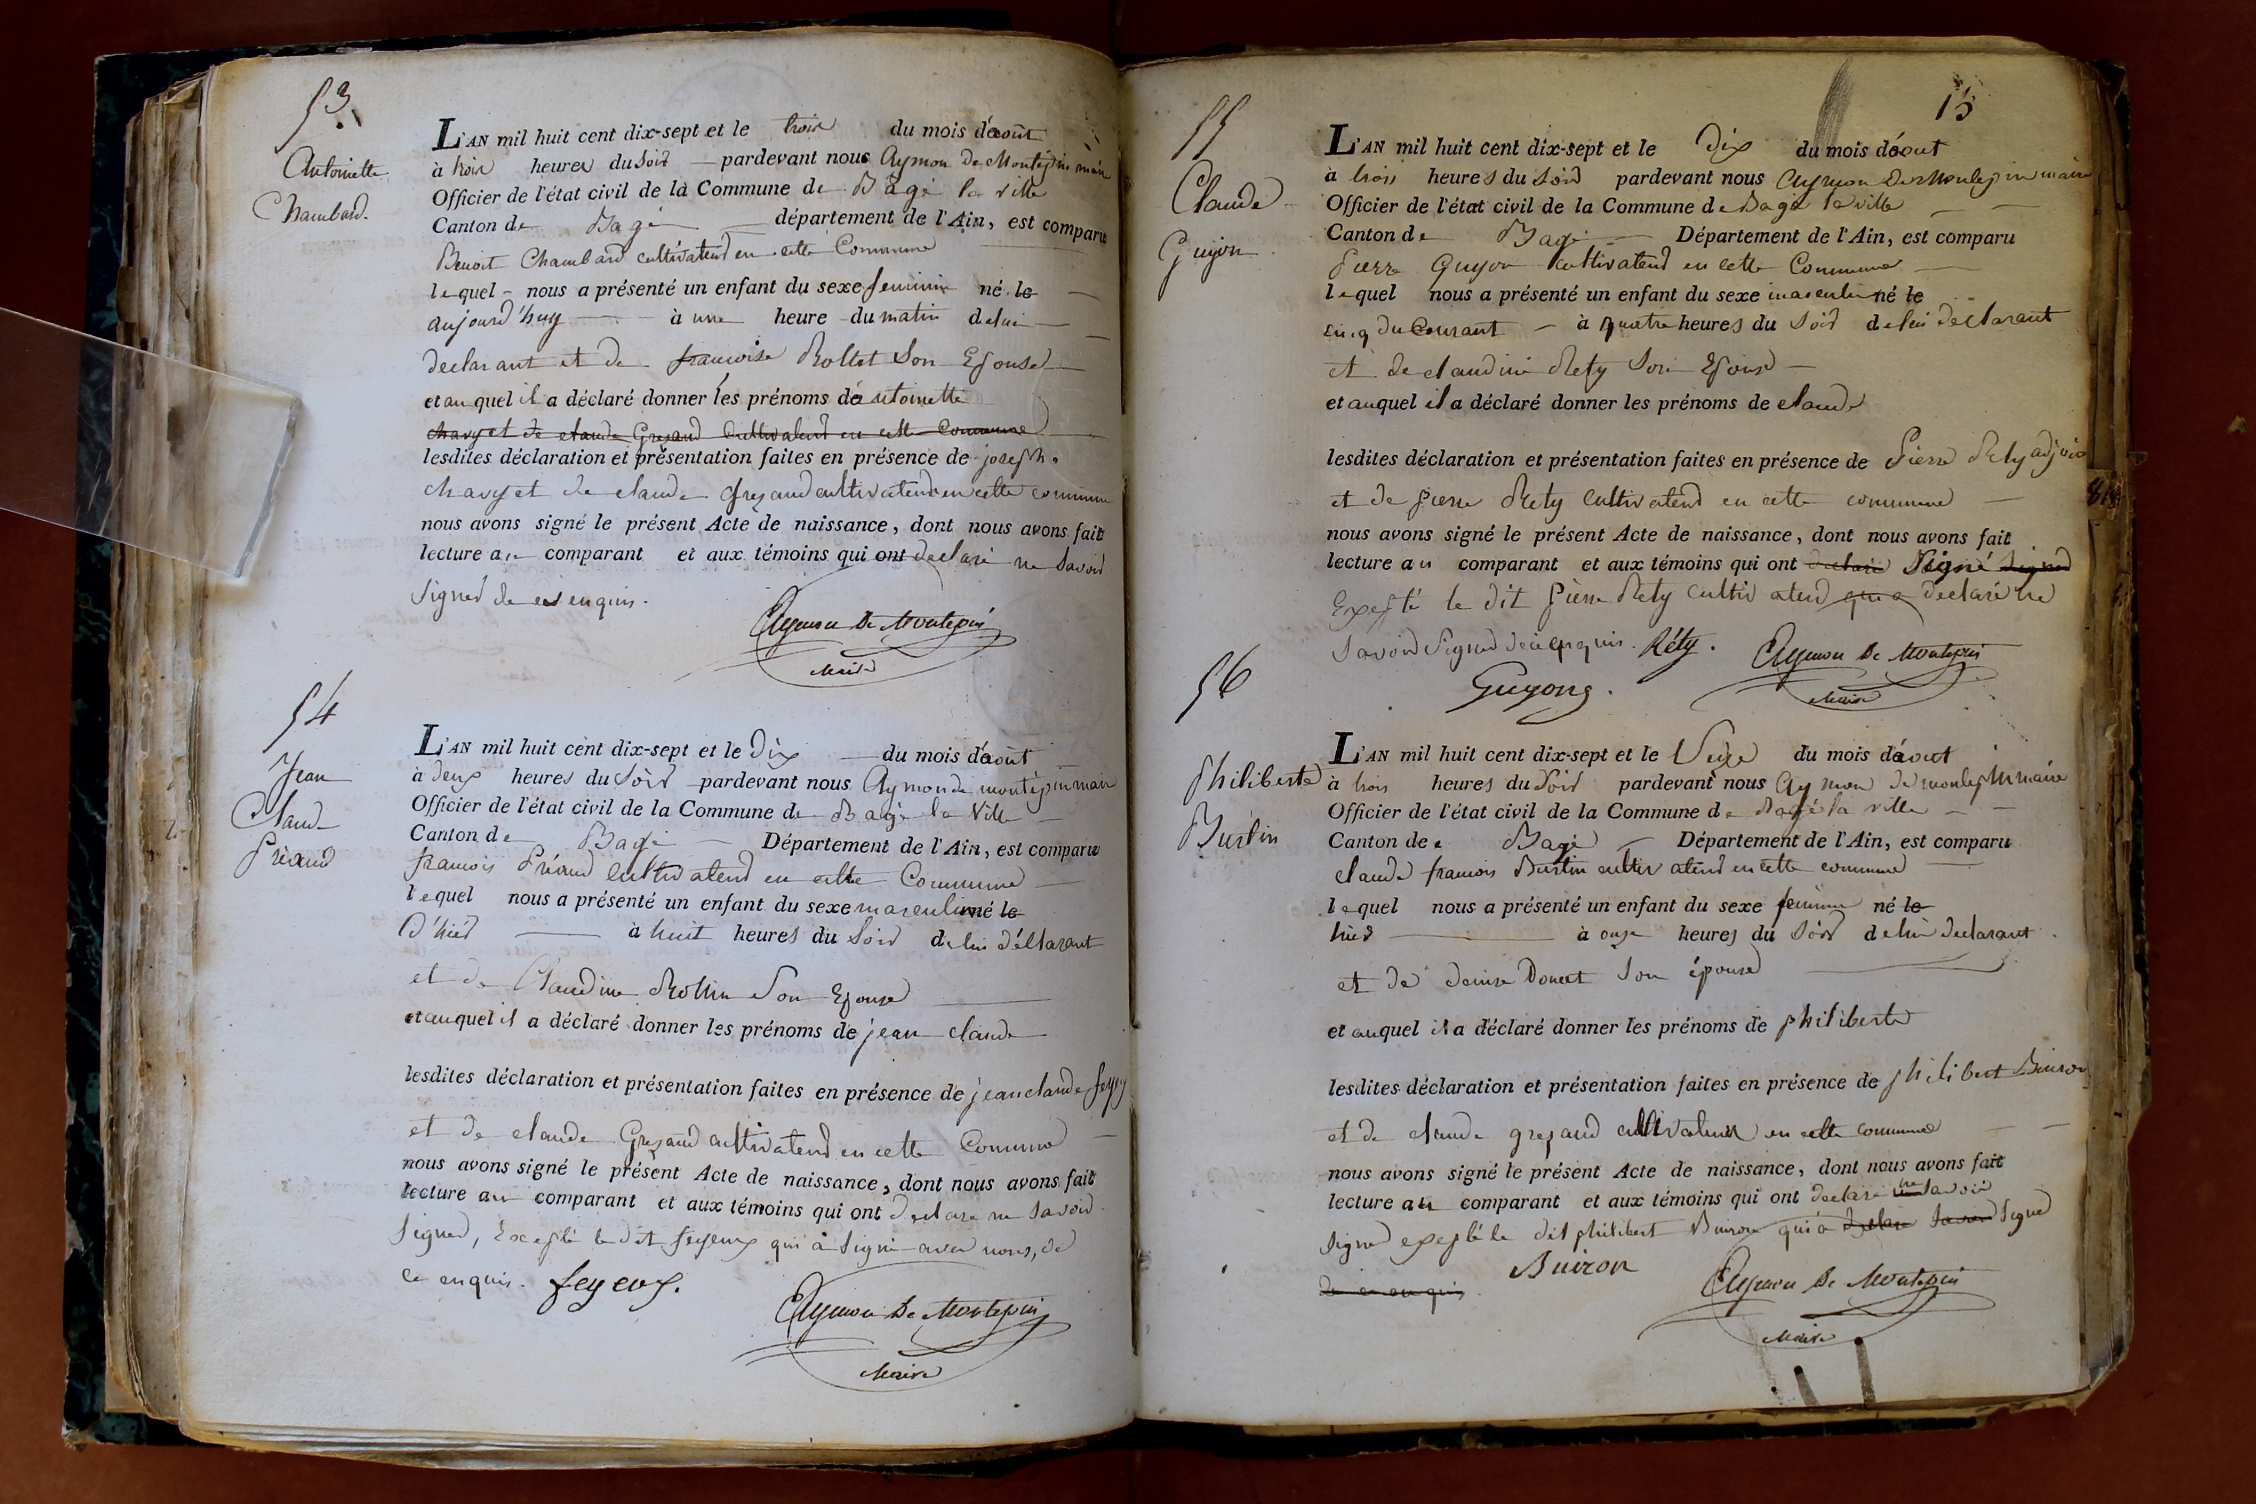 53.
Antoinette
Chambard.
L'AN mil huit cent dix-sept et le trois du mois d'aout
à trois heures du soir pardevant nous Aymon De Montépin maire
Officier de l'état civil de la Commune de Bagé la ville
Canton de Bagé département de l'Ain, est comparu
Benoit Chambard cultivateur en cette Commune
lequel nous a présenté un enfant du sexe feminin né le
aujourd'huy à une heure du matin de lui
declarant et de francoise Rollet son Epouse
et auquel il a déclaré donner les prénoms d'antoinette
chavyet de claude Grezaud Cultivateur en cette Commune
lesdites déclaration et présentation faites en présence de joseph
chavyet de claude Grezaud cultivateur en cette commune
nous avons signé le présent Acte de naissance, dont nous avons fait
lecture au comparant et aux témoins qui ont declaré ne savoir
signer de ce enquis.
Aymon De Montepin
Maire
54
Jean
Claude
Préaud
L'AN mil huit cent dix-sept et le Dix du mois d'aout
à deux heures du soir pardevant nous Aymon de montépin maire
Officier de l'état civil de la Commune de Bagé la Ville
Canton de Bagé Département de l'Ain, est comparu
francois Préaud Cultivateur en cette Commune
lequel nous a présenté un enfant du sexe masculin né le
D'hier à huit heures du soir de lui déclarant
et de Claudine Rollin son Epouse
et auquel il a déclaré donner les prénoms de jean claude
lesdites déclaration et présentation faites en présence de jean claude
et de claude Grezaud cultivateur en cette Commune
nous avons signé le présent Acte de naissance, dont nous avons fait
lecture au comparant et aux témoins qui ont declaré ne savoir
signer, Excepté le dit feyeux qui a signé avec nous, de
ce enquis. feyeux.
Aymon De Montepin
Maire
15
55
Claude
Guyon
L'AN mil huit cent dix-sept et le Dix du mois d'aout
à trois heures du soir pardevant nous Aymon De Montepin maire
Officier de l'état civil de la Commune de Bagé la ville
Canton de Bagé Département de l'Ain, est comparu
Pierre Guyon Cultivateur en cette Commune
lequel nous a présenté un enfant du sexe masculin né le
cinq du Courant à quatre heures du soir de lui declarant
et de claudine Rety son Epouse
et auquel il a déclaré donner les prénoms de claude
lesdites déclaration et présentation faites en présence de Pierre Rety adjoint
et de pierre Rety cultivateur en cette commune
nous avons signé le présent Acte de naissance, dont nous avons fait
lecture au comparant et aux témoins qui ont declaré Signé signer
Excepté le dit pierre Rety cultivateur qui a declaré ne
savoir signer de ce enquis. Réty.
Guyong.
Aymon De Montepin
Maire
56
Philiberte
Burtin
L'AN mil huit cent dix-sept et le Seize du mois d'aout
à trois heures du soir pardevant nous Aymon de montepin maire
Officier de l'état civil de la Commune de Bagé la ville
Canton de Bagé Département de l'Ain, est comparu
claude francois Burtin cultivateur en cette commune
lequel nous a présenté un enfant du sexe feminin né le
hier à onze heures du soir de lui declarant
et de denise Donet son épouse
et auquel il a déclaré donner les prénoms de philiberte
lesdites déclaration et présentation faites en présence de philibert Buiron
et de claude grezaud cultivateur en cette commune
nous avons signé le présent Acte de naissance, dont nous avons fait
lecture au comparant et aux témoins qui ont declaré ne savoir
signer excepté le dit philibert Buiron qui a declare savoir signé
de ce enquis
Buiron
Aymon De Montepin
Maire